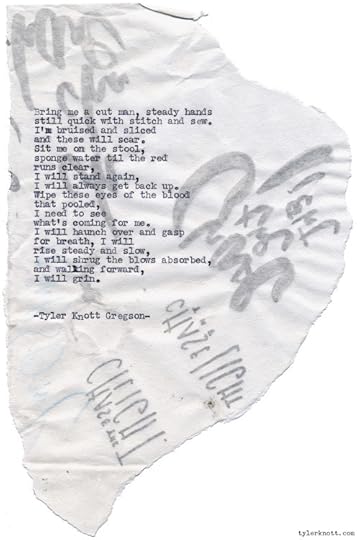 Bring me a cut man, steady hands
still quick with stitch and sew.
I'm bruised and sliced
and these will scar.
Sit me on the stool,
sponge water til the red
runs clear,
I will stand again,
I will always get back up.
Wipe these eyes of the blood
that pooled,
I need to see
what's coming for me.
I will haunch over and gasp
for breath, I will
rise steady and slow,
I will shrug the blows absorbed,
and walking forward,
I will grin.
-Tyler Knott Gregson-
CHASE
THE
LIGHT
CHASE THE
LIGHT
tylerknott.com